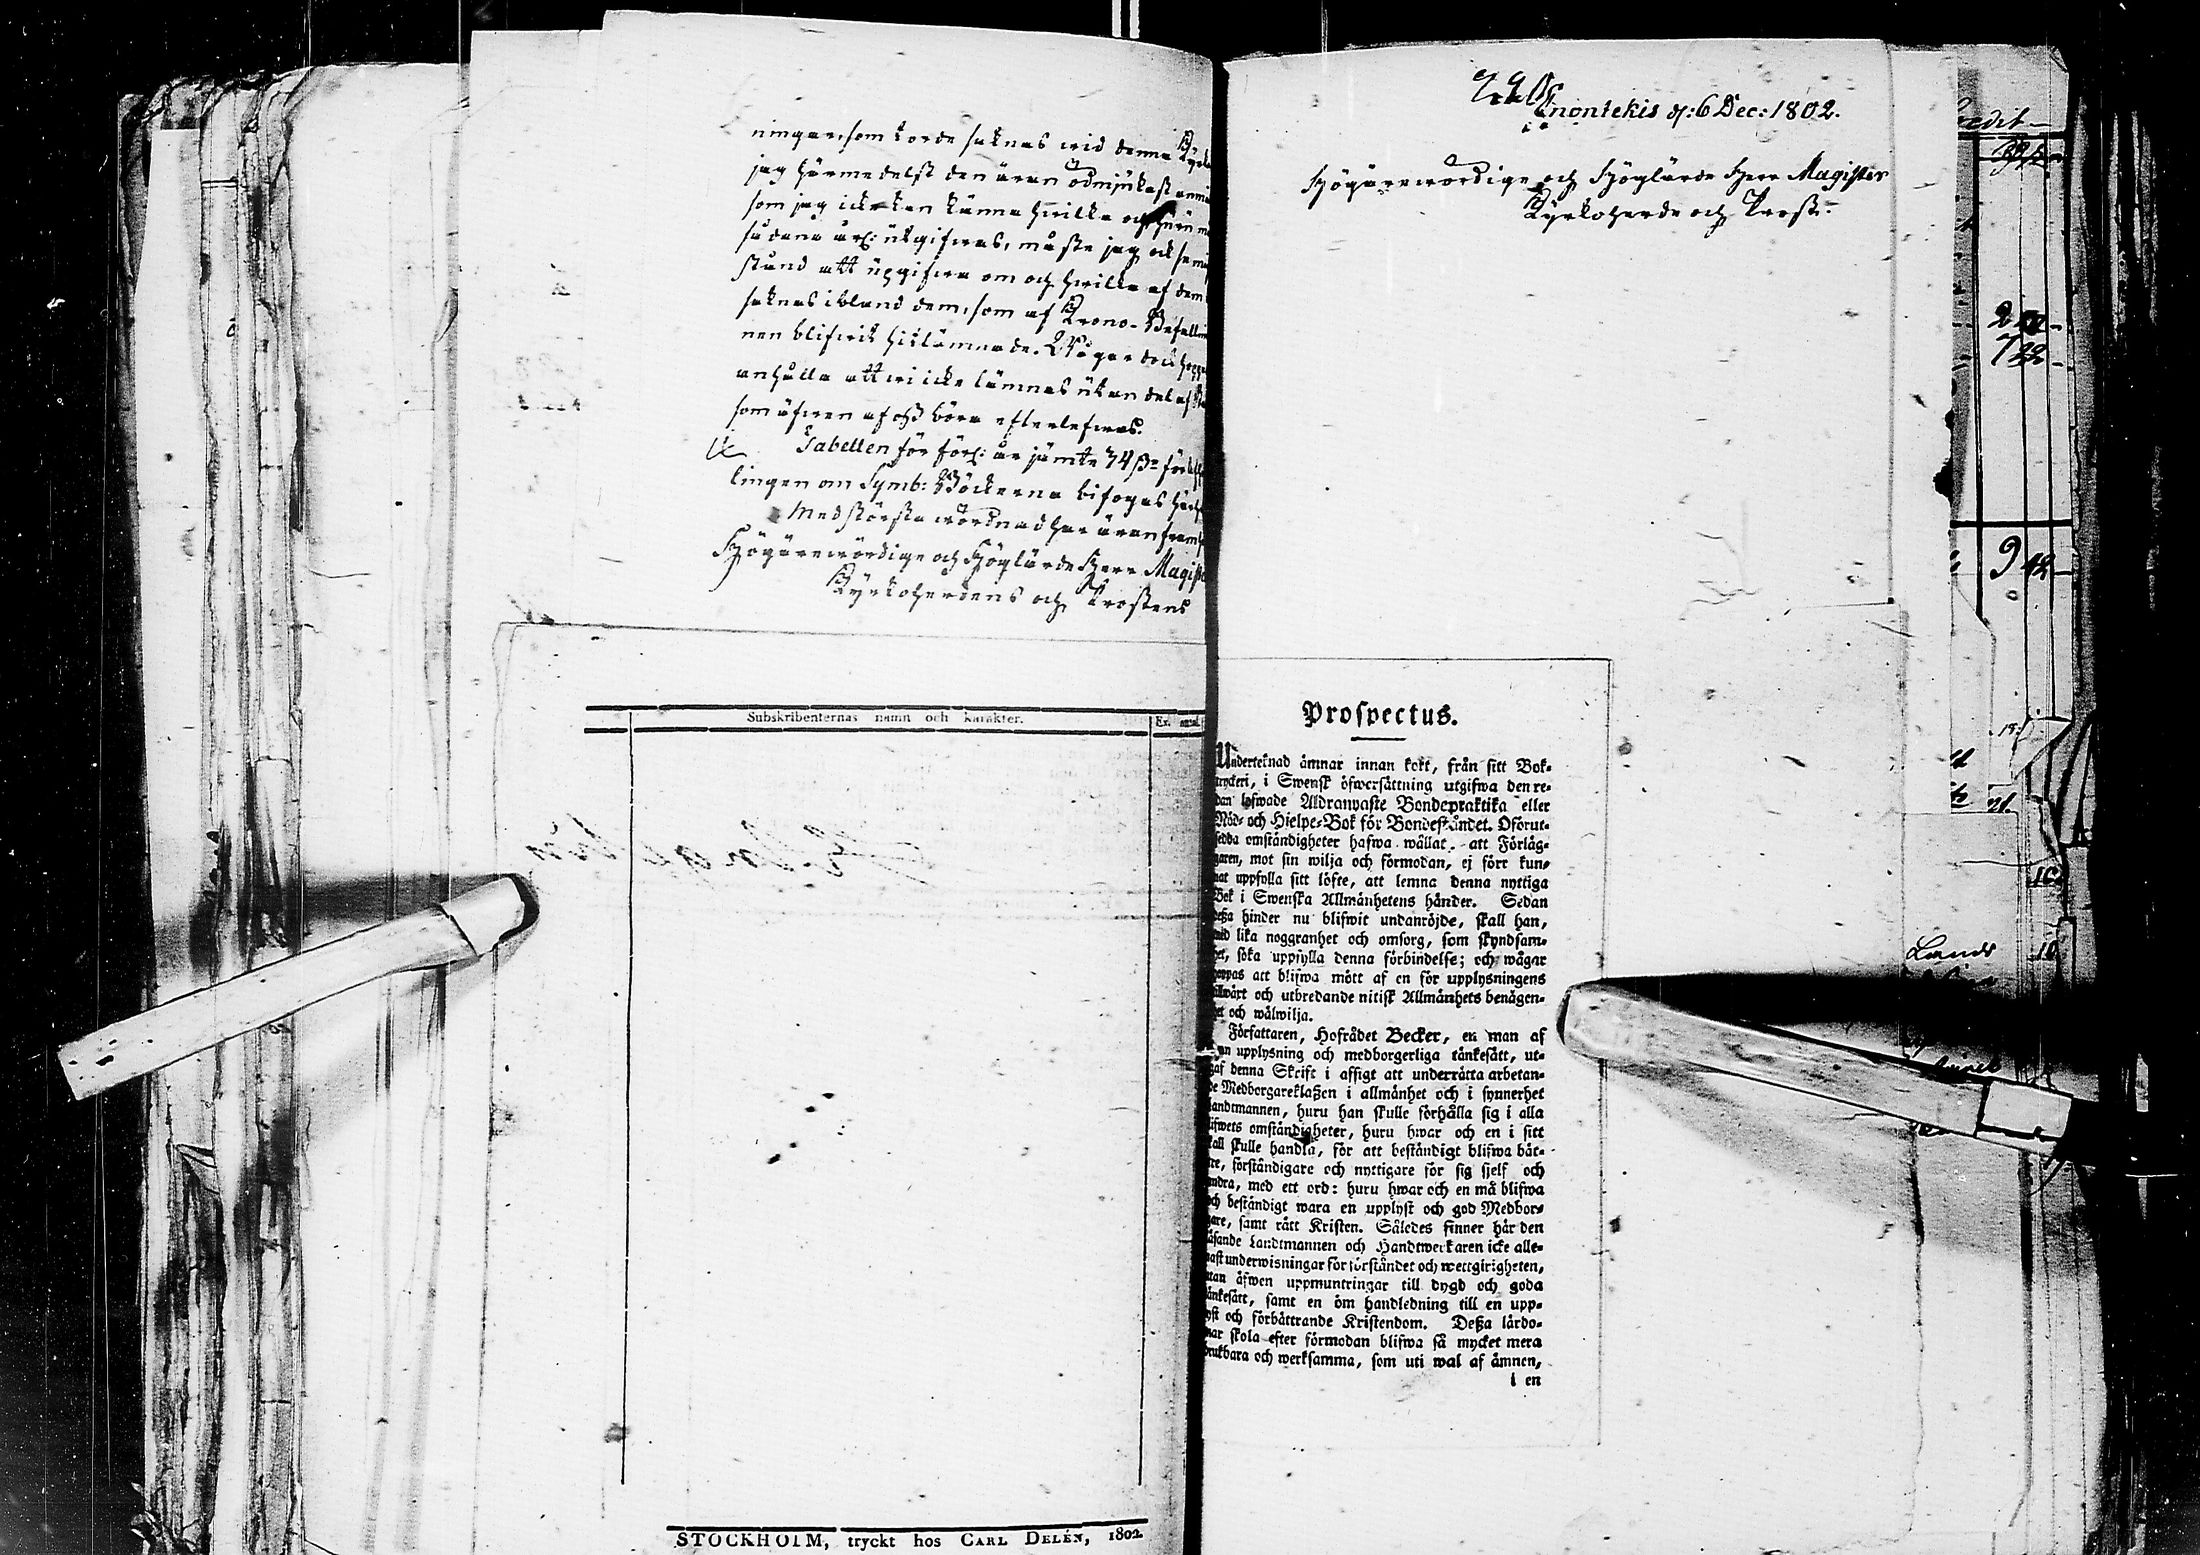 ningar, som torde saknas wid denna Kyrka
jag härmedelst den äran ödmjukast anmä
som jag icke kan känna hwilka och huru m
sådana årl: utgifwas, måste jag ock se mig
stånd att upgifwa om och hwilka af dem
saknas ibland dem, som af Krono-Befallni
nen blifwit hitlämnade. Wågar dock hopp
anhålla att wi icke lämnas utan del af
som äfwen af oss böra efterlefwas.
Tabellen för förl: år jämte 74 ß
lingen om Symb: Böckerna bifogas här
Med största wördnad har äran fram
Högärewördige och Höglärde Herr Magist
Kyrkoherdens och Prostens
Subskribenternas namn och karakter.
Ex. antal
STOCKHOLM, tryckt hos CARL DELÉN, 1802
Enontekis d: 6 Dec: 1802.
Högärewördige och Höglärde Herr Magister
Kyrkoherde och Prost.
Prospectus.
Undertecknad ämnar innan kort, från sitt Bok-
tryckeri, i Swensk öfwersättning utgifwa den re-
dan lofwade Aldranyaste Bondepraktika eller
Nöd- och Hielpe-Bok för Bondeståndet. Oförut-
sedda omständigheter hafwa wållat, att Förläg-
garen, mot sin wilja och förmodan, ej förr kun-
nat uppfylla sitt löfte, att lemna denna nyttiga
Bok i Swenska Allmänhetens händer. Sedan
deßa hinder nu blifwit undanröjde, skall han,
med lika noggranhet och omsorg, som skyndsam-
het, söka uppfylla denna förbindelse; och wågar
hoppas att blifwa mött af en för upplysningens
tilwäxt och utbredande nitisk Allmänhets benägen-
het och wälwilja.
Författaren, Hofrådet Becker, en man af
upplysning och medborgerliga tänkesätt, ut-
gaf denna Skrift i affigt att underrätta arbetan-
de Medborgareklaßen i allmänhet och i synnerhet
Landtmannen, huru han skulle förhålla sig i alla
lifwets omständigheter, huru hwar och en i sitt
kall skulle handla, för att beständigt blifwa bät-
tre, förståndigare och nyttigare för sig sjelf och
andra, med ett ord: huru hwar och en må blifwa
och beständigt wara en upplyst och god Medbor-
gare, samt rätt Kristen. Således finner här den
läsande Landtmannen och Handtwerkaren icke alle-
nast underwisningar för förståndet och wettgirigheten,
utan äfwen uppmuntringar till dygd och goda
tänkesätt, samt en öm handledning till en upp-
lyst och förbättrande Kristendom. Deßa lärdo-
mar skola efter förmodan blifwa så mycket mera
brukbara och werksamma, som uti wal af ämnen,
i en
2
722
9 42
16
Lands 18